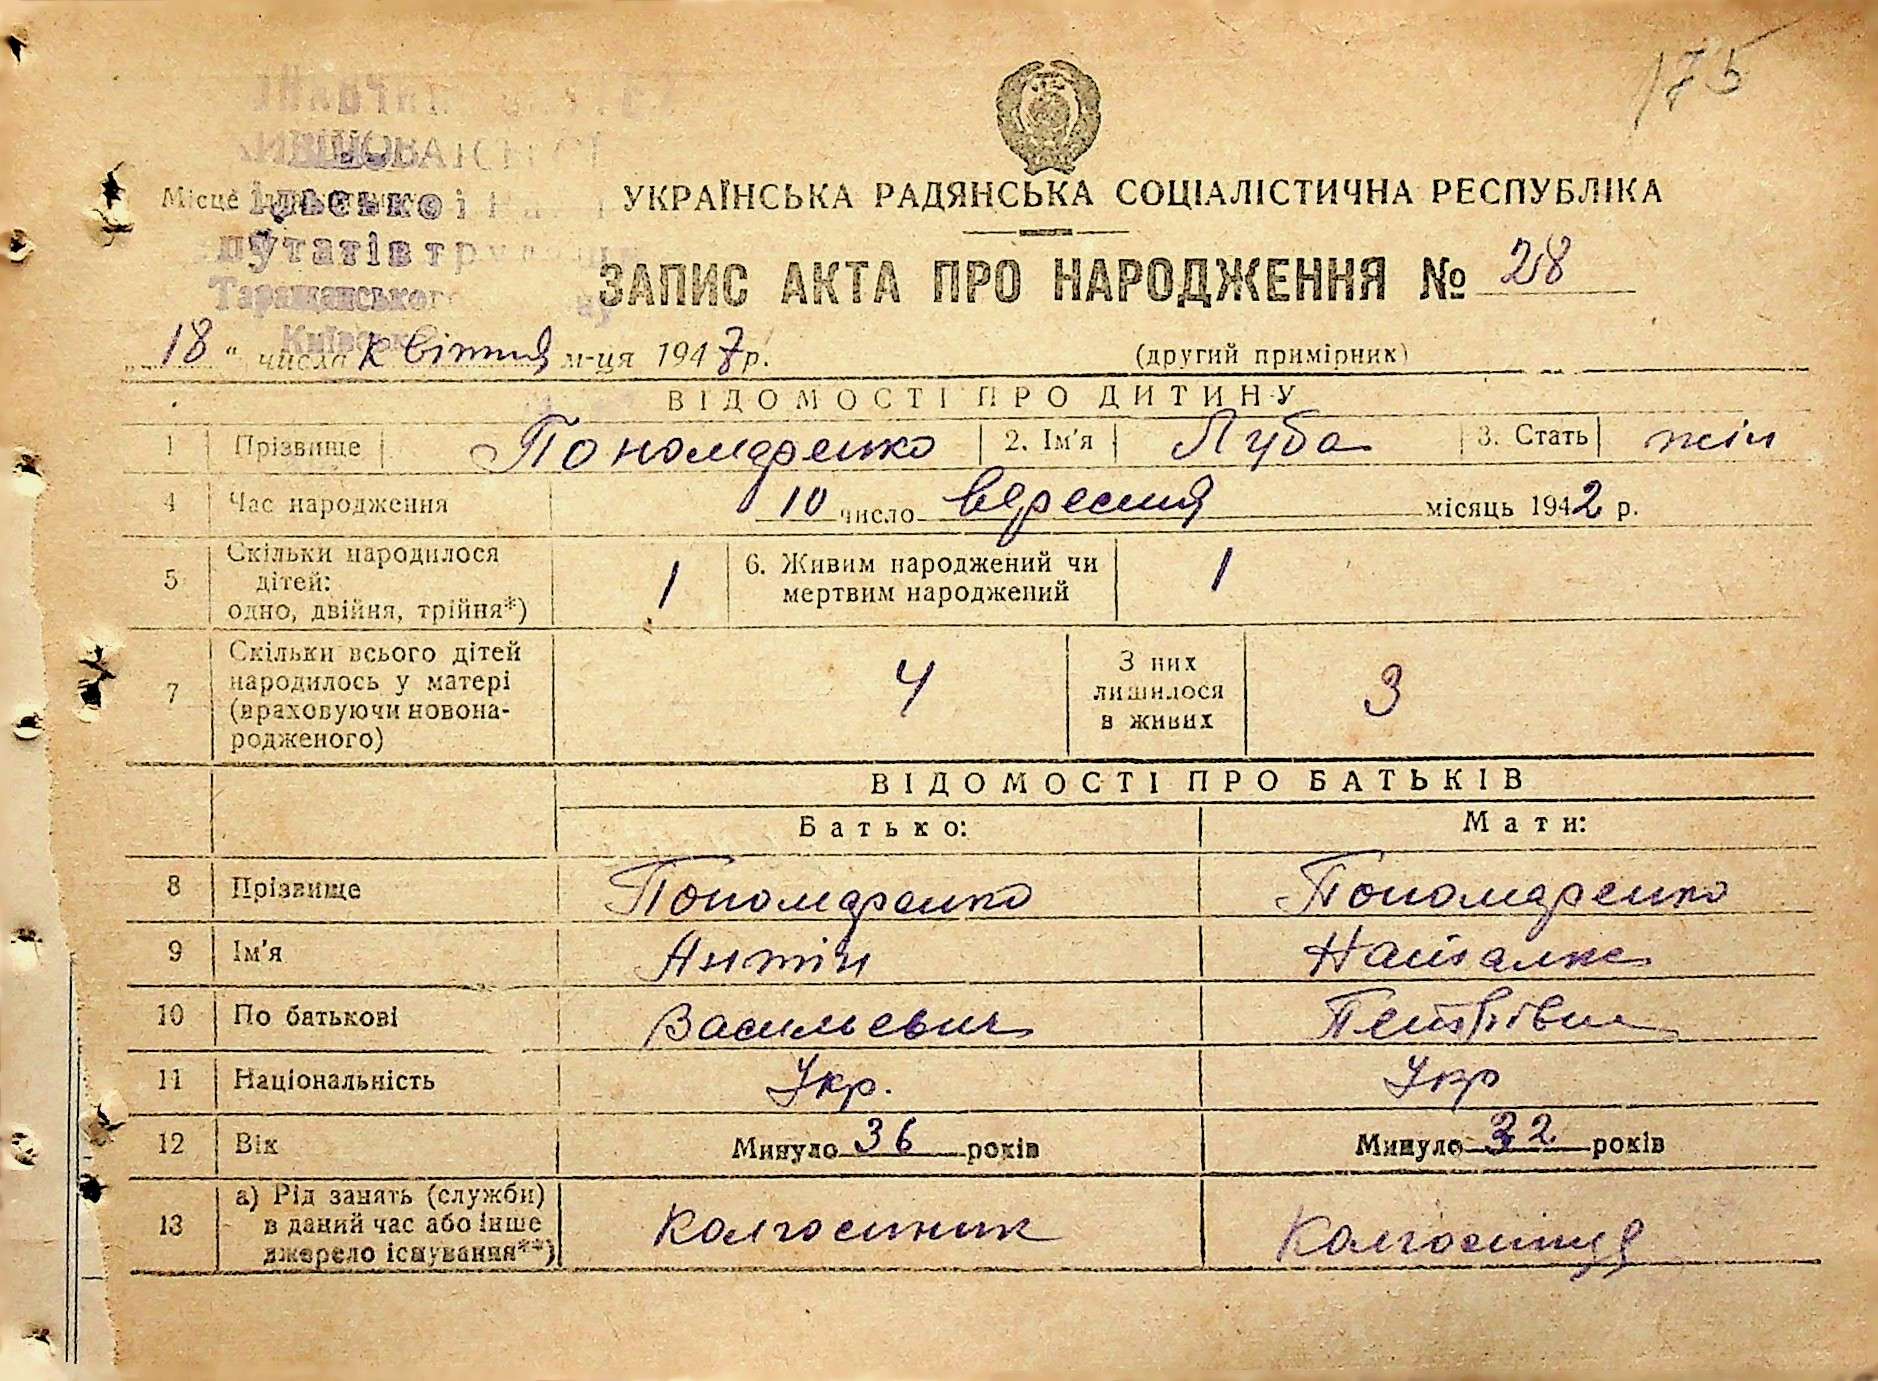 175
УКРАЇНСЬКА РАДЯНСЬКА СОЦІАЛІСТИЧНА РЕСПУБЛІКА
Місце
путатів
Таращанського
ЗАПИС АКТА ПРО НАРОДЖЕННЯ № 28
18 " числа квітня м-ця 1947 р.
(другий примірник)
ВІДОМОСТІ ПРО ДИТИНУ
1 Прізвище Пономаренко 2. Ім'я Люба 3. Стать жін
4 Час народження 10 число вересня місяць 1942 р.
5 Скільки народилося
дітей:
одно, двійня, трійня*)
1
6. Живим народжений чи
мертвим народжений
1
7 Скільки всього дітей
народилось у матері
(враховуючи новона-
родженого)
4
З них
лишилося
в живих
3
ВІДОМОСТІ ПРО БАТЬКІВ
Батько: Мати:
8 Прізвище Пономаренко Пономаренко
9 Ім'я Антін Наталка
10 По батькові Васильевич Петрівна
11 Національність Укр. Укр
12 Вік Минуло 36 років Минуло 32 років
13 а) Рід занять (служби)
в даний час або інше
джерело існування**)
Колгоспник Колгоспниця